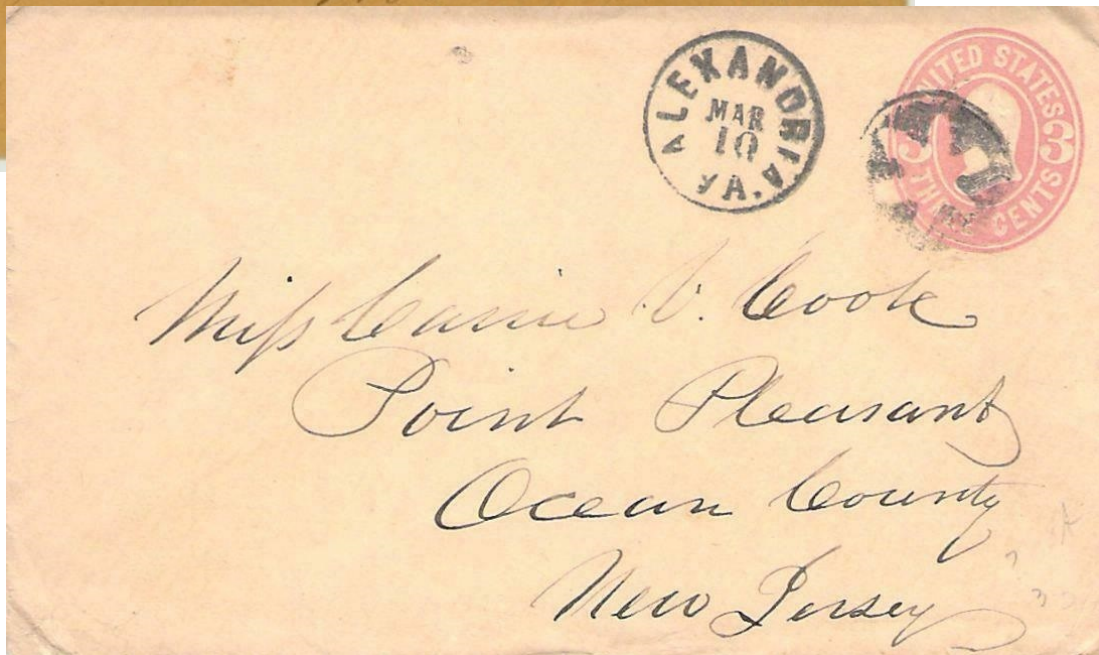 ALEXANDRIA VA.
MAR
10
UNITED STATES
3 3
THREE CENTS
Miss Carrie V. Cook
Point Pleasant
Ocean County
New Jersey